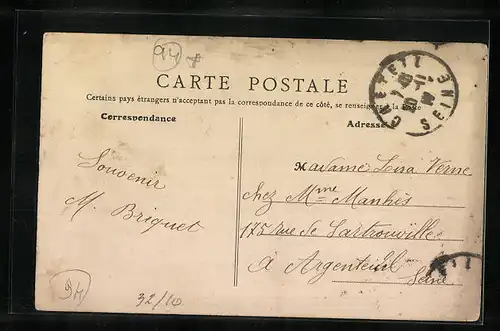 94
CARTE POSTALE
Certains pays étrangers n'acceptant pas la correspondance de ce côté, se renseigner à la Poste
Correspondance
Adresse
CRETEIL
SEINE
Souvenir
M. Briquet
Madame Verne
chez Mme Manhès
175 rue de Sartrouville
à Argenteuil
Seine
94
32/10